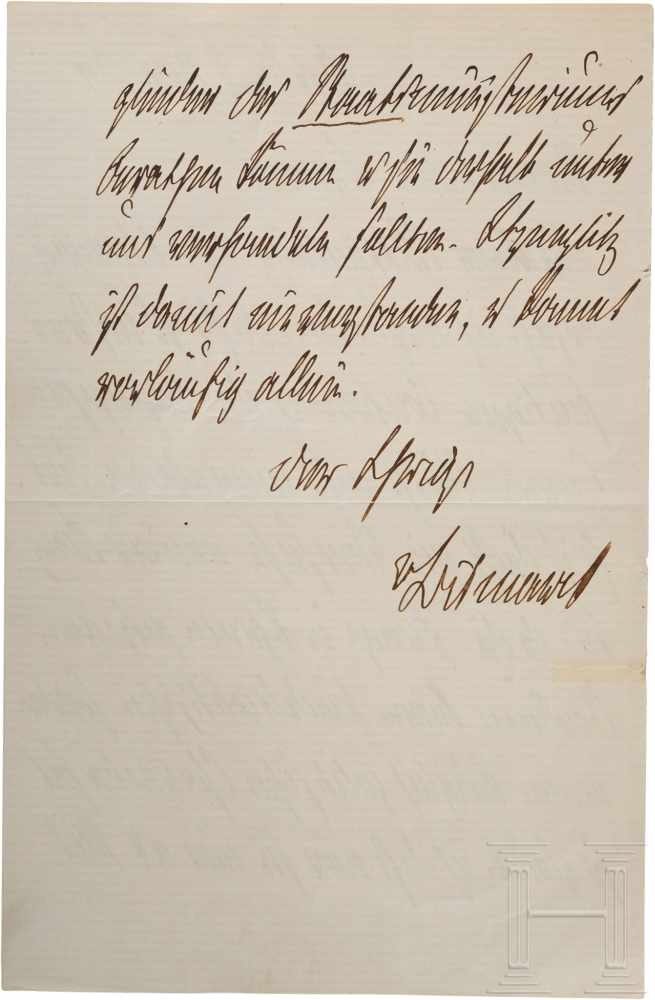 glieder des Staatsministeriums
berathen können u sie deshalb unter
uns verhandeln sollten. Itzenplitz
ist damit einverstanden, u kommt
vorläufig allein.
der Ihrige
v Bismarck
H